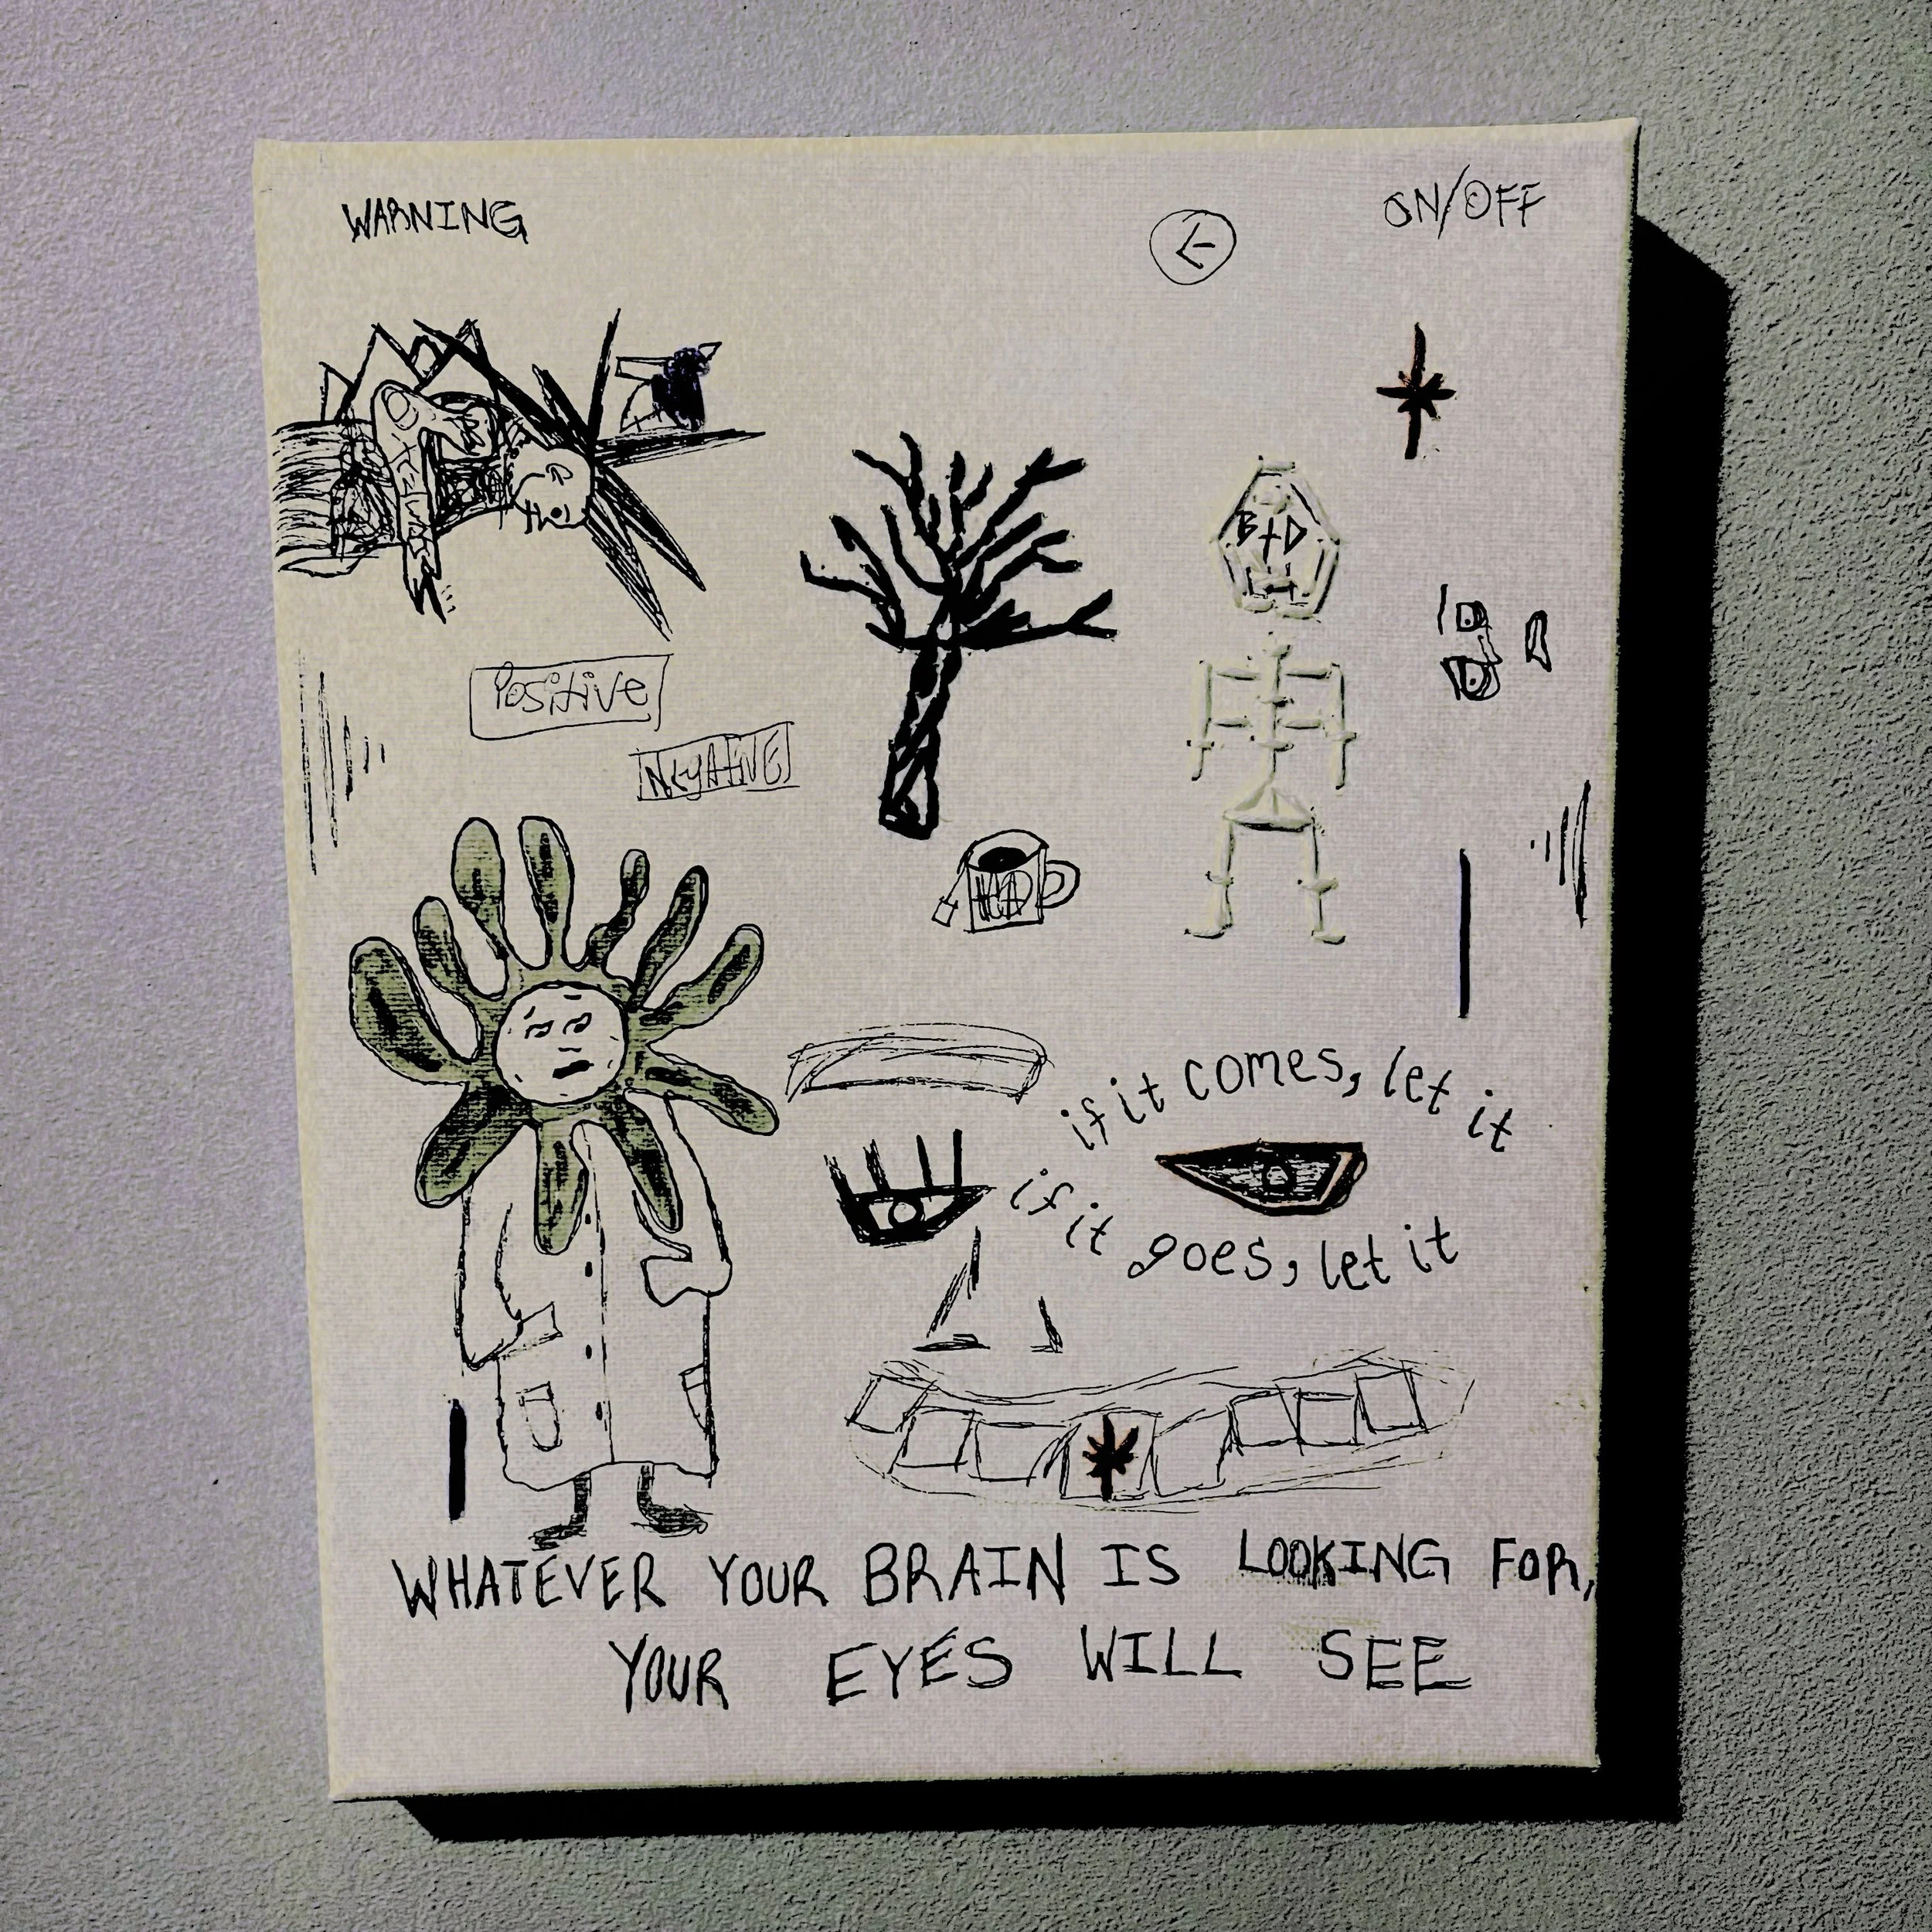 WARNING
ON/OFF
B+D
Positive
NEgATIVE
if it comes, let it
if it goes, let it
WHATEVER YOUR BRAIN IS LOOKING FOR,
YOUR EYES WILL SEE